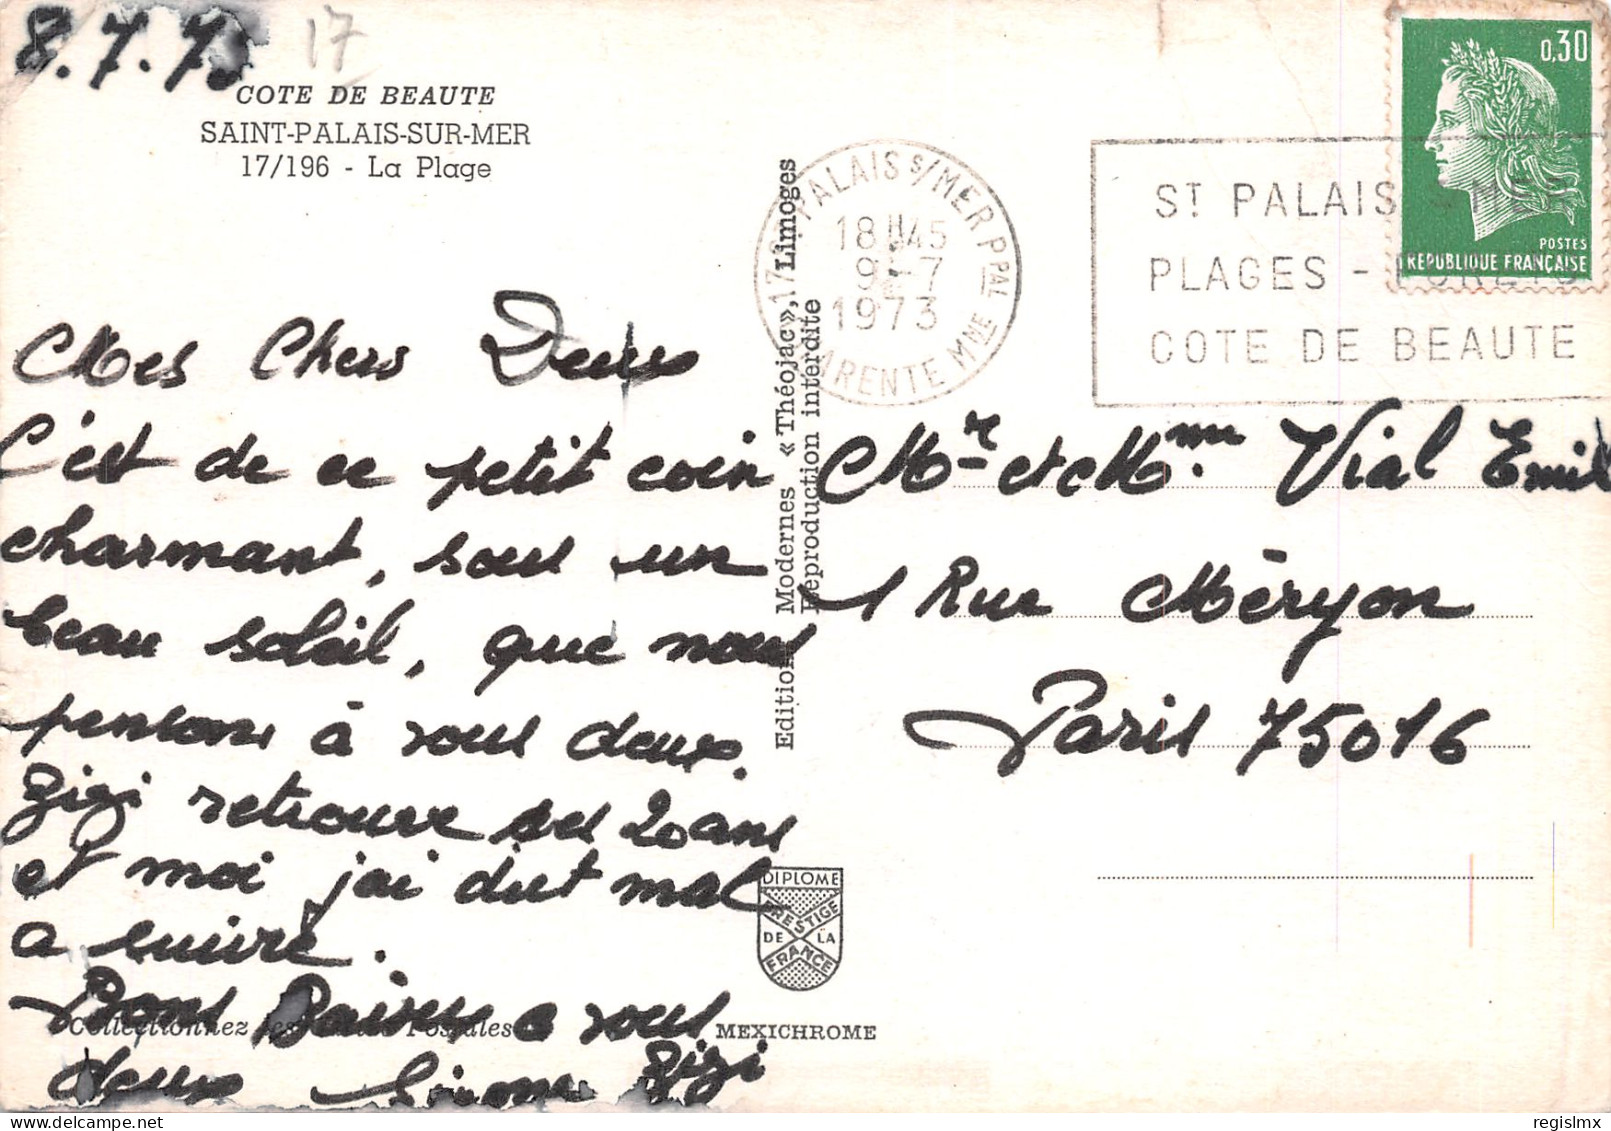 8.7.73
17
COTE DE BEAUTE
SAINT-PALAIS-SUR-MER
17/196 - La Plage
Mes Chers Deux
C'est de ce petit coin
charmant, sous un
beau soleil, que nous
pensons à vous deux.
Zizi retrouve ses 20 ans
et moi j'ai dut mal
a suivre.
Bons Baisers a vous
deux Simone Zizi
Collectionnez les Postales
Editions Modernes « Théojac », Limoges
Reproduction interdite
DIPLOME
PRESTIGE
DE LA
FRANCE
MEXICHROME
17 ST PALAIS S/MER PPAL
18H45
9-7
1973
CHARENTE MME
ST PALAIS S/MER
PLAGES - FORETS
COTE DE BEAUTE
0,30
POSTES
REPUBLIQUE FRANÇAISE
Mr et Mme Vial Emil
1 Rue Méryon
Paris 75016
regislmx